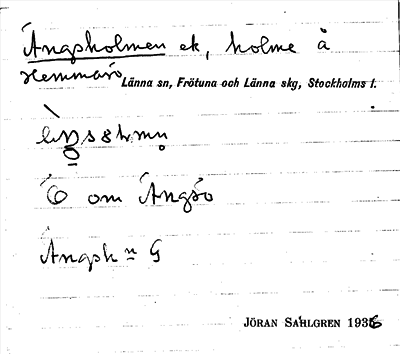 Ängsholmen ek, holme å
Hemmarö Länna sn, Frötuna och Länna skg, Stockholms l.
Ö om Ängsö
Ängsh n G
JÖRAN SAHLGREN 1936